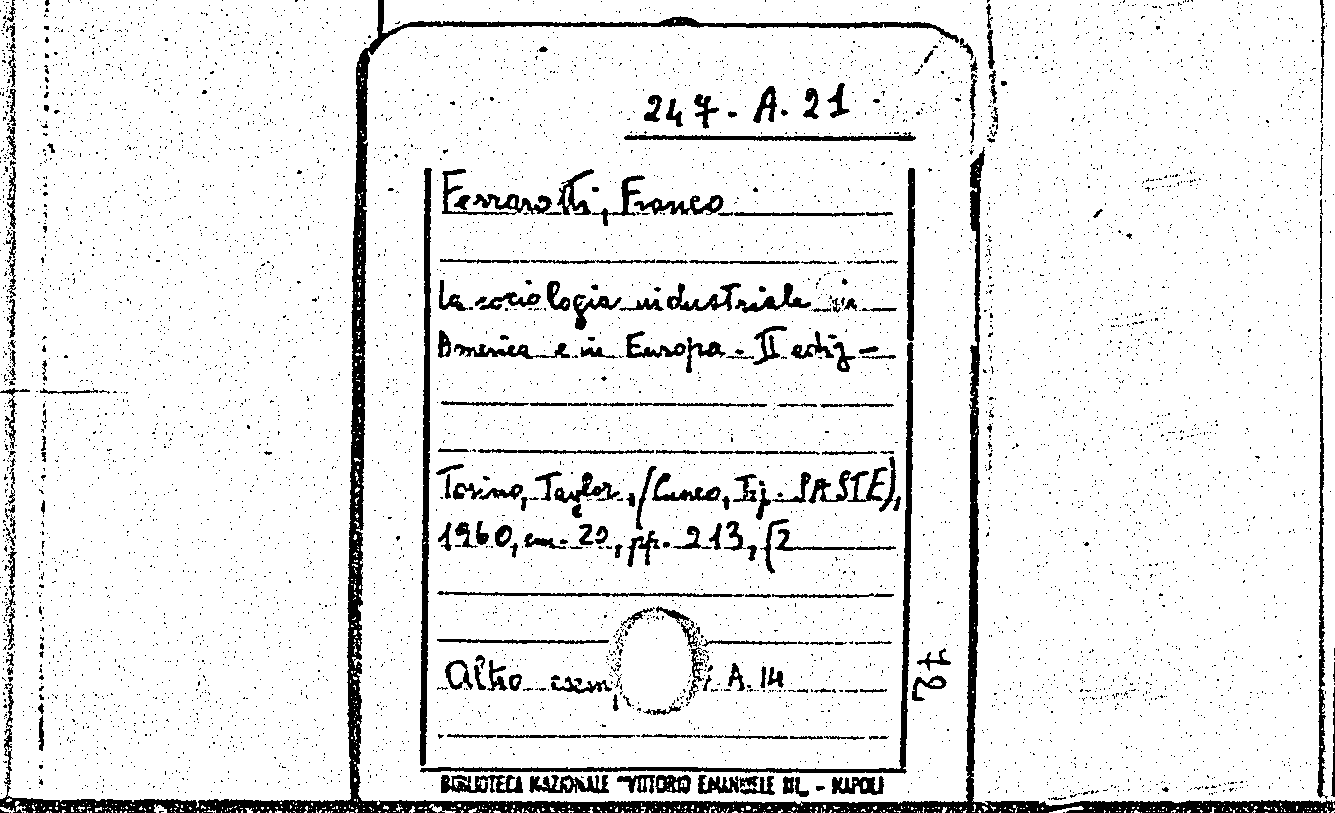 247. A. 21
Ferrarotti, Franco
La sociologia industriale in
America e in Europa - II ediz -
Torino, Taylor, (Cuneo, Tip. SASTE),
1960, cm. 20, pp. 213, [2
Altro esem A. 14
72
BIBLIOTECA NAZIONALE "VITTORIO EMANUELE III_ - NAPOLI